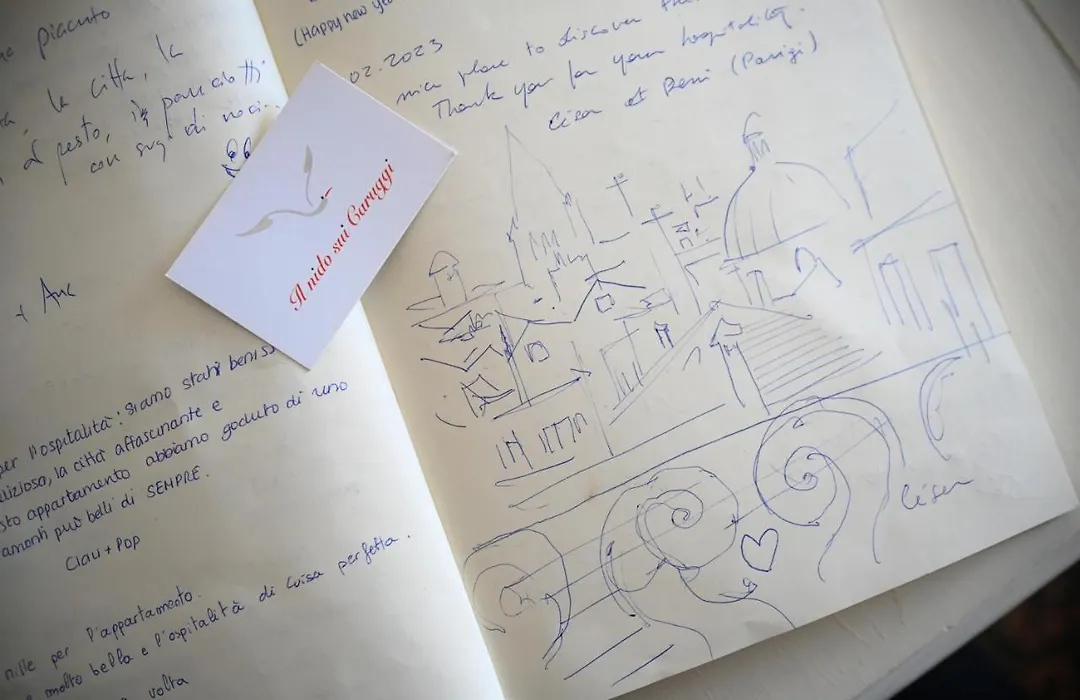 piacuto
la città, la
al pesto, i pansotti
con sugo di noci...
+ Anc
per l'ospitalità: siamo stati beniss
liziosa, la città affascinante e
sto appartamento abbiamo goduto di uno
amenti più belli di SEMPRE.
Clau + Pop
mille per l'appartamento.
molto bella e l'ospitalità di Luisa perfetta.
volta
Il nido sui Caruggi
(Happy new yea
02.2023
nice place to discover
Thank you for your hospitality.
et Remi (Parigi)